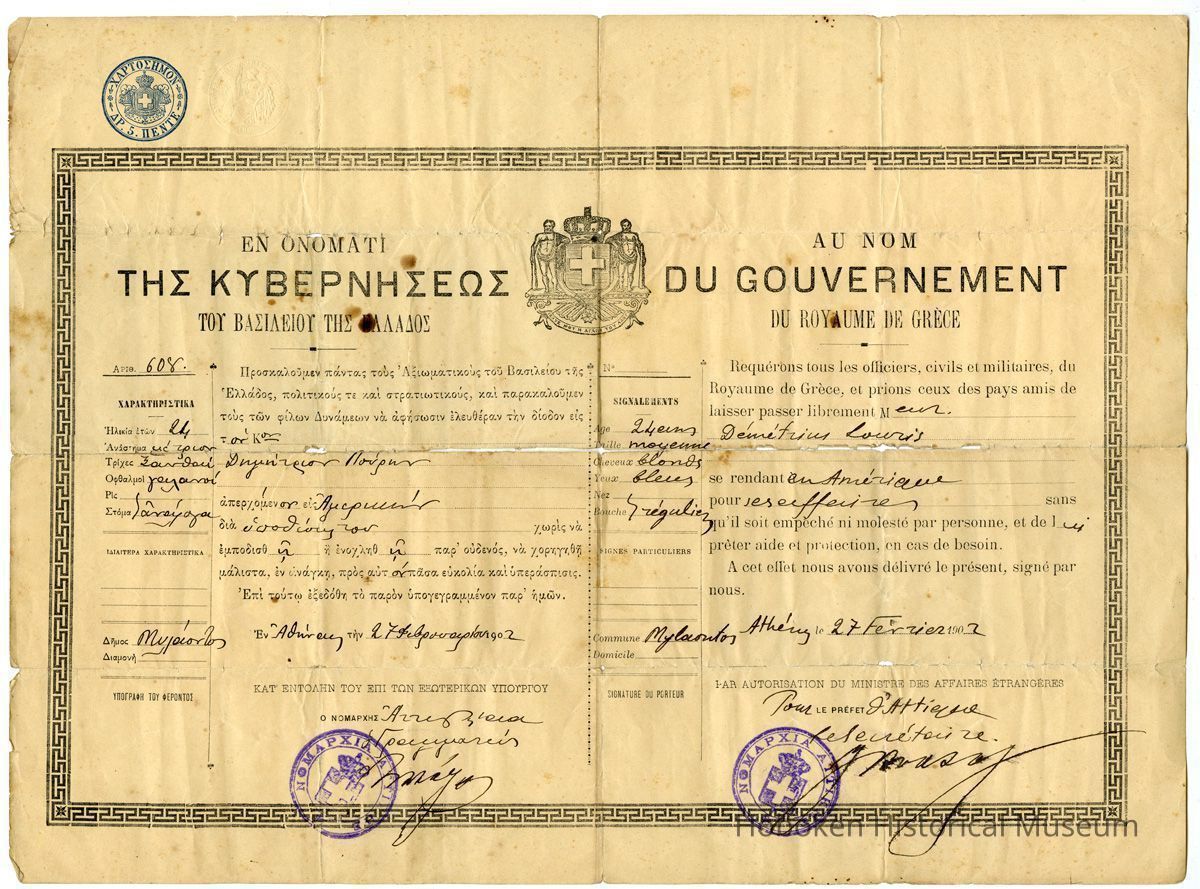 ΧΑΡΤΟΣΗΜΟΝ
ΔΡ. 5. ΠΕΝΤΕ
ΕΝ ΟΝΟΜΑΤΙ
ΤΗΣ ΚΥΒΕΡΝΗΣΕΩΣ
ΤΟΥ ΒΑΣΙΛΕΙΟΥ ΤΗΣ ΕΛΛΑΔΟΣ
ΑΡΙΘ. 608.
ΧΑΡΑΚΤΗΡΙΣΤΙΚΑ
Ἡλικία ἐτῶν 24
Ἀνάστημα μέτριον
Τρίχες ξανθαί
Ὀφθαλμοί γαλανοί
Ρίς
Στόμα ἀνάλογα
ΙΔΙΑΙΤΕΡΑ ΧΑΡΑΚΤΗΡΙΣΤΙΚΑ
Δῆμος Μυλάοντος
Διαμονή
ΥΠΟΓΡΑΦΗ ΤΟΥ ΦΕΡΟΝΤΟΣ
Προσκαλοῦμεν πάντας τοὺς Ἀξιωματικοὺς τοῦ Βασιλείου τῆς
Ἑλλάδος, πολιτικούς τε καὶ στρατιωτικούς, καὶ παρακαλοῦμεν
τοὺς τῶν φίλων Δυνάμεων νὰ ἀφήσωσιν ἐλευθέραν τὴν δίοδον εἰς
τὸν Κον
Δημήτριον Λούρην
ἀπερχόμενον εἰς Ἀμερικήν
διὰ ὑποθέσεις του χωρὶς νὰ
ἐμποδισθῇ ἢ ἐνοχληθῇ παρ' οὐδενός, νὰ χορηγηθῇ
μάλιστα, ἐν ἀνάγκῃ, πρὸς αὐτὸν πᾶσα εὐκολία καὶ ὑπεράσπισις.
Ἐπὶ τούτῳ ἐξεδόθη τὸ παρὸν ὑπογεγραμμένον παρ' ἡμῶν.
Ἐν Ἀθήναις τῇ 27 Φεβρουαρίου 1902
ΚΑΤ' ΕΝΤΟΛΗΝ ΤΟΥ ΕΠΙ ΤΩΝ ΕΞΩΤΕΡΙΚΩΝ ΥΠΟΥΡΓΟΥ
Ο ΝΟΜΑΡΧΗΣ
Γραμματεύς
ΝΟΜΑΡΧΙΑ ΑΤΤΙΚΗΣ
AU NOM
DU GOUVERNEMENT
DU ROYAUME DE GRÈCE
No
SIGNALEMENTS
Age 24 ans
Taille moyenne
Cheveux blonds
Yeux bleus
Nez
Bouche régulier
SIGNES PARTICULIERS
Commune Mylaontos
Domicile
SIGNATURE DU PORTEUR
Requérons tous les officiers, civils et militaires, du
Royaume de Grèce, et prions ceux des pays amis de
laisser passer librement Meur.
Démétrius Louris
se rendant en Amérique
pour ses affaires sans
qu'il soit empêché ni molesté par personne, et de lui
prêter aide et protection, en cas de besoin.
A cet effet nous avons délivré le présent, signé par
nous.
Athènes le 27 Février 1902
PAR AUTORISATION DU MINISTRE DES AFFAIRES ÉTRANGÈRES
Pour LE PRÉFET d'Attique
Le secrétaire.
ΝΟΜΑΡΧΙΑ ΑΤΤΙΚΗΣ
Hoboken Historical Museum